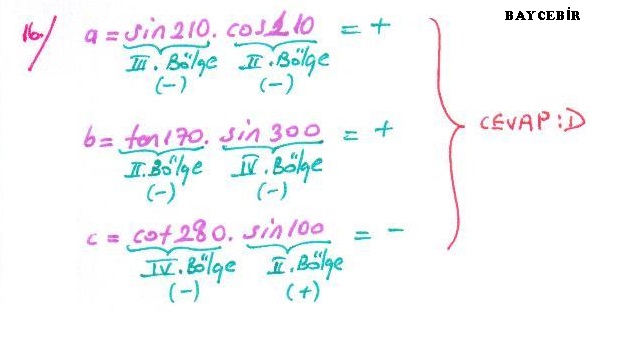 BAYCEBİR
16) a = sin210. cos110 = +
III. Bölge II. Bölge
(-) (-)
b = tan170. sin300 = +
II. Bölge IV. Bölge
(-) (-)
c = cot280. sin100 = -
IV. Bölge II. Bölge
(-) (+)
CEVAP:D